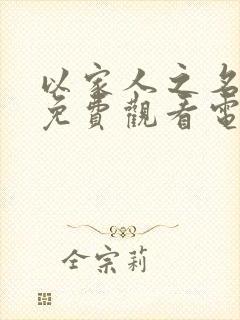 以家人之名
免費觀看電
全宗莉